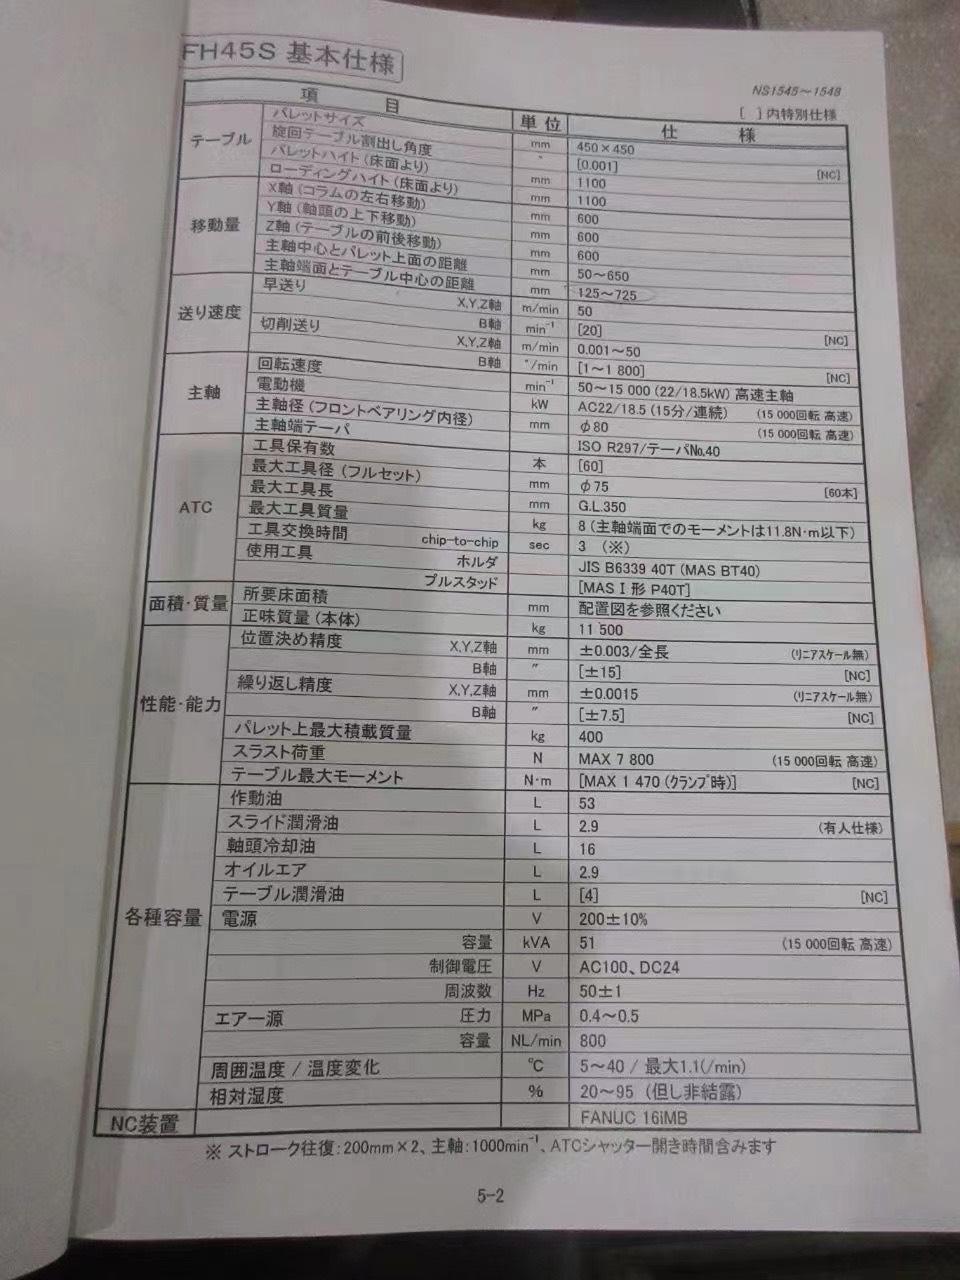 FH45S 基本仕様
NS1545～1548
[ ]内特別仕様
項 目 単位 仕 様
テーブル パレットサイズ mm 450×450
旋回テーブル割出し角度 ° [0.001] [NC]
パレットハイト(床面より) mm 1100
ローディングハイト(床面より) mm 1100
移動量 X軸(コラムの左右移動) mm 600
Y軸(軸頭の上下移動) mm 600
Z軸(テーブルの前後移動) mm 600
主軸中心とパレット上面の距離 mm 50～650
主軸端面とテーブル中心の距離 mm 125～725
送り速度 早送り X,Y,Z軸 m/min 50
B軸 min⁻¹ [20] [NC]
切削送り X,Y,Z軸 m/min 0.001～50
B軸 °/min [1～1 800] [NC]
主軸 回転速度 min⁻¹ 50～15 000 (22/18.5kW) 高速主軸
電動機 kW AC22/18.5 (15分/連続) (15 000回転 高速)
主軸径(フロントベアリング内径) mm φ80 (15 000回転 高速)
主軸端テーパ ISO R297/テーパNo.40
ATC 工具保有数 本 [60] [60本]
最大工具径(フルセット) mm φ75
最大工具長 mm G.L.350
最大工具質量 kg 8 (主軸端面でのモーメントは11.8N·m以下)
工具交換時間 chip-to-chip sec 3 (※)
使用工具 ホルダ JIS B6339 40T (MAS BT40)
プルスタッド [MAS I 形 P40T]
面積·質量 所要床面積 mm 配置図を参照ください
正味質量(本体) kg 11 500
性能·能力 位置決め精度 X,Y,Z軸 mm ±0.003/全長 (リニアスケール無)
B軸 ″ [±15] [NC]
繰り返し精度 X,Y,Z軸 mm ±0.0015 (リニアスケール無)
B軸 ″ [±7.5] [NC]
パレット上最大積載質量 kg 400
スラスト荷重 N MAX 7 800 (15 000回転 高速)
テーブル最大モーメント N·m [MAX 1 470 (クランプ時)] [NC]
各種容量 作動油 L 53
スライド潤滑油 L 2.9 (有人仕様)
軸頭冷却油 L 16
オイルエア L 2.9
テーブル潤滑油 L [4] [NC]
電源 V 200±10%
容量 kVA 51 (15 000回転 高速)
制御電圧 V AC100、DC24
周波数 Hz 50±1
エアー源 圧力 MPa 0.4～0.5
容量 NL/min 800
周囲温度 / 温度変化 ℃ 5～40 / 最大1.1(/min)
相対湿度 % 20～95 (但し非結露)
NC装置 FANUC 16iMB
※ ストローク往復:200mm×2、主軸:1000min⁻¹、ATCシャッター開き時間含みます
5-2